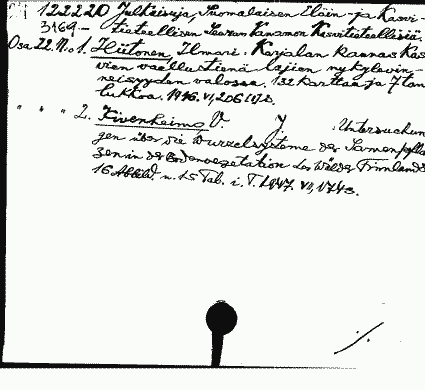 122220 Julkaisuja, Suomalaisen Eläin- ja Kasvi-
3169.- tieteellisen Seuran Vanamon Kasvitieteellisiä.
Osa 22. N:o 1. Hiitonen, Ilmari: Karjalan kannas Kas
vien vaellustienä lajien nykylevin-
neisyyden valossa. 132 karttaa ja 7 tau
lukkoa. 1946. VI, 206 s.
" " " 2. Kivenheimo, V. J. : Untersuchun
gen über die Wurzelsysteme der Samenpflan
zen in der Bodenvegetation der Wälder Finnlands
16 Abbild. u. 15 Tab. i. T. 1947. VII, 174 s.